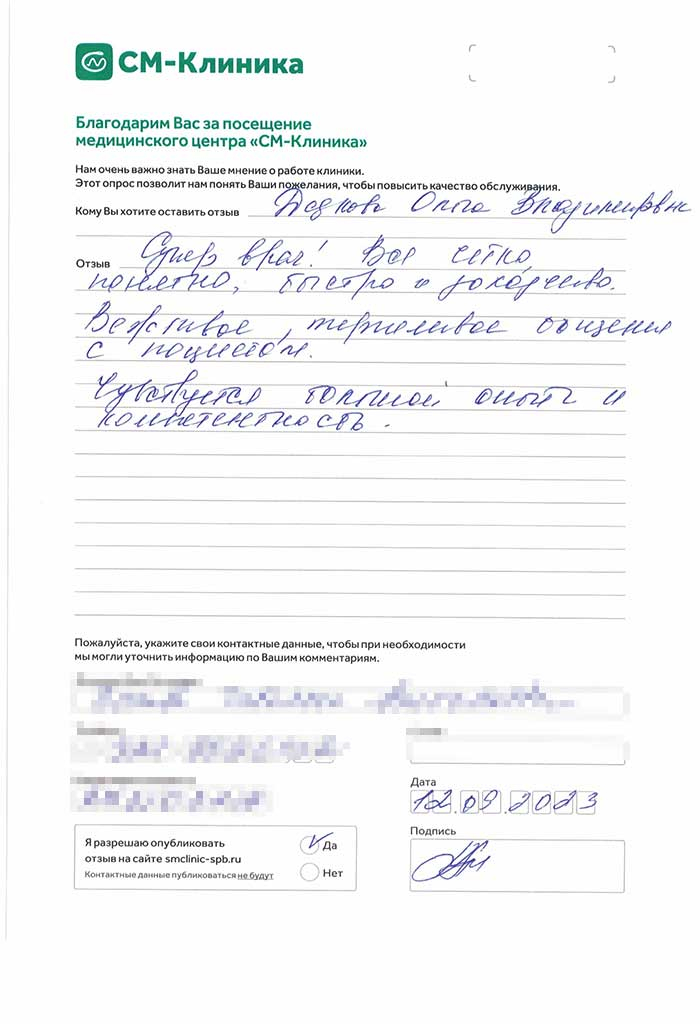 СМ-Клиника
Благодарим Вас за посещение
медицинского центра «СМ-Клиника»
Нам очень важно знать Ваше мнение о работе клиники.
Этот опрос позволит нам понять Ваши пожелания, чтобы повысить качество обслуживания.
Кому Вы хотите оставить отзыв Дедкова Ольга Владимировне
Отзыв Супер врач! Все четко,
понятно, быстро и доходчиво.
Вежливое, терпеливое общение
с пациентом.
Чувствуется большой опыт и
компетентность.
Пожалуйста, укажите свои контактные данные, чтобы при необходимости
мы могли уточнить информацию по Вашим комментариям.
Дата
12.09.2023
Я разрешаю опубликовать
отзыв на сайте smclinic-spb.ru
Контактные данные публиковаться не будут
Да
Нет
Подпись